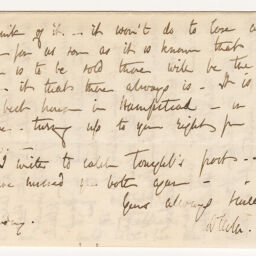 think of it .. it won't do to lose a
for as soon as it is known that
is to be sold there will be the
it that there always is - It is
best house in Hampstead - in
turning up to your right from
I write to catch tonight's post -
missed you both again -
Yours always